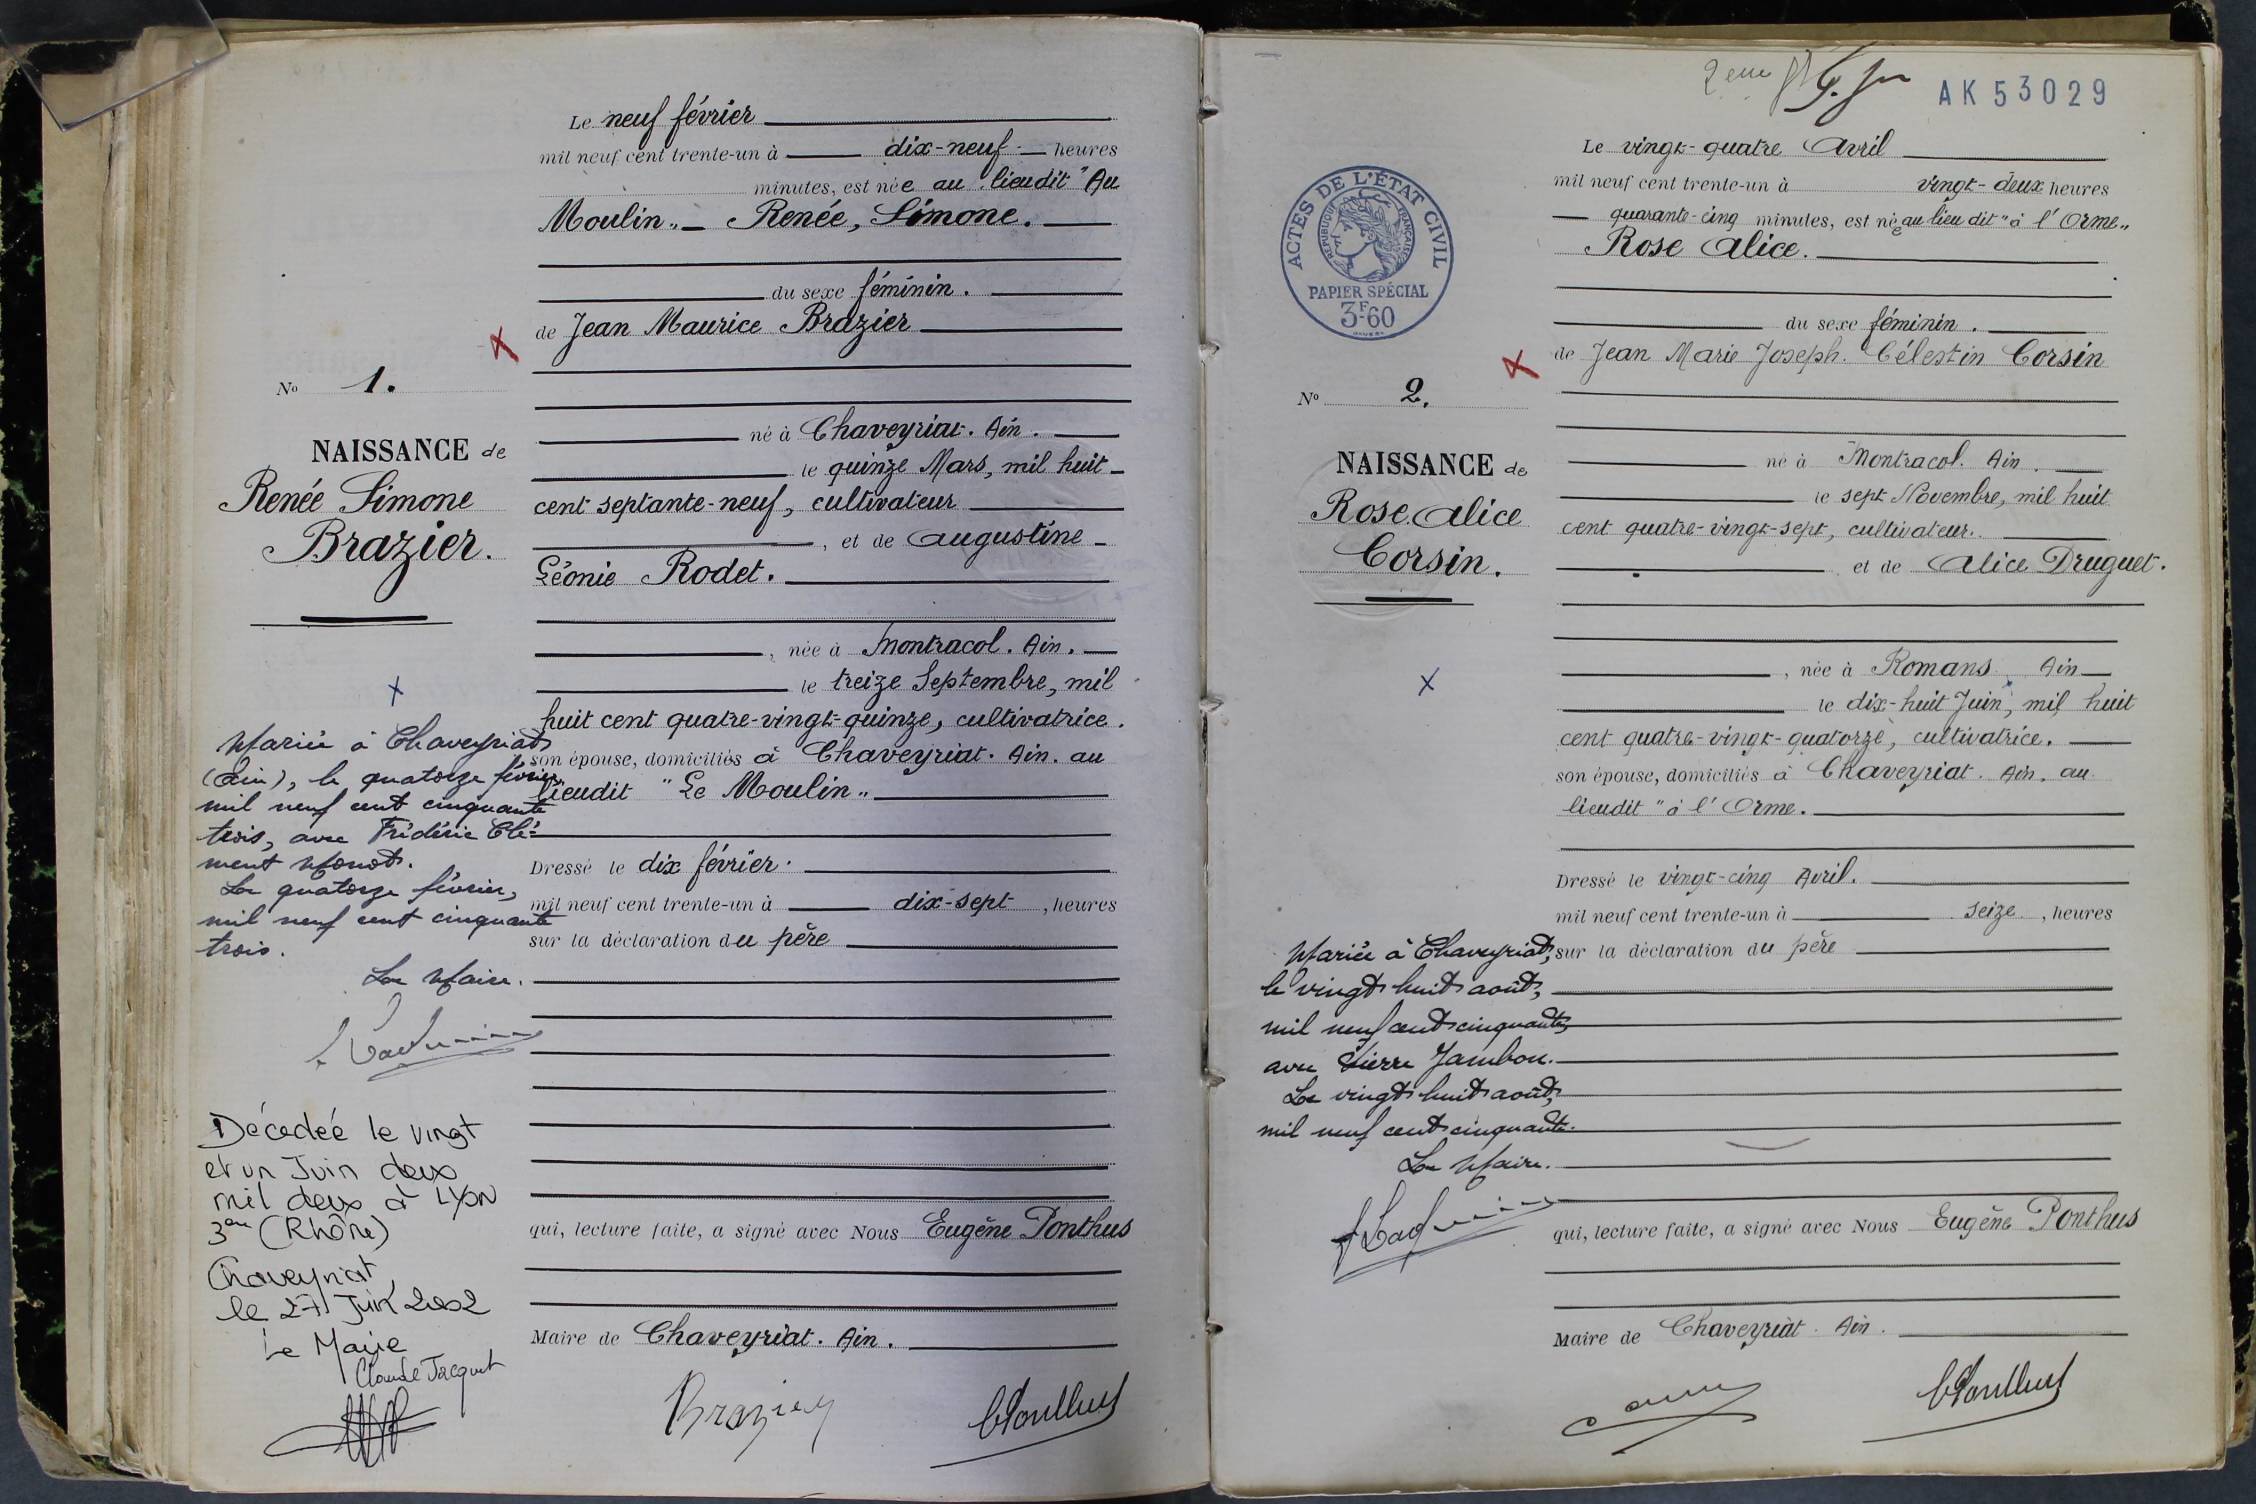 Le neuf février
mil neuf cent trente-un à dix-neuf heures
minutes, est née au lieudit "Au
Moulin" Renée, Simone.
du sexe féminin.
de Jean Maurice Brazier
né à Chaveyriat. Ain.
le quinze Mars, mil huit
cent septante-neuf, cultivateur
, et de Augustine
Léonie Rodet.
, née à Montracol. Ain.
le treize Septembre, mil
huit cent quatre-vingt-quinze, cultivatrice.
son épouse, domiciliés à Chaveyriat. Ain. au
lieudit "Le Moulin"
Dressé le dix février.
mil neuf cent trente-un à dix-sept, heures
sur la déclaration du père
qui, lecture faite, a signé avec Nous Eugène Ponthus
Maire de Chaveyriat. Ain.
Brazier
Ponthus
No 1.
NAISSANCE de
Renée Simone
Brazier.
Mariée à Chaveyriat
(Ain), le quatorze février
mil neuf cent cinquante
trois, avec Frédéric Clé-
ment Monot.
Le quatorze février,
mil neuf cent cinquante
trois.
Le Maire.
Décedée le vingt
et un Juin deux
mil deux à LYON
3eme (Rhône)
Chaveyriat
le 27 Juin 2002
Le Maire
Claude Jacquet
2eme
AK53029
ACTES DE L'ÉTAT CIVIL
RÉPUBLIQUE FRANÇAISE
PAPIER SPÉCIAL
3F60
Le vingt-quatre Avril
mil neuf cent trente-un à vingt-deux heures
quarante-cinq minutes, est née au lieu dit "à l'Orme"
Rose Alice.
du sexe féminin.
de Jean Marie Joseph. Célestin Corsin
né à Montracol. Ain.
le sept Novembre, mil huit
cent quatre-vingt-sept, cultivateur.
et de Alice Druguet.
, née à Romans, Ain
le dix-huit Juin, mil huit
cent quatre-vingt-quatorze, cultivatrice.
son épouse, domiciliés à Chaveyriat. Ain. au
lieudit "à l'Orme.
Dressé le vingt-cinq Avril.
mil neuf cent trente-un à seize, heures
sur la déclaration du père
qui, lecture faite, a signé avec Nous Eugène Ponthus
Maire de Chaveyriat. Ain.
Ponthus
No 2.
NAISSANCE de
Rose Alice
Corsin.
Mariée à Chaveyriat,
le vingt huit août,
mil neuf cent cinquante,
avec Pierre Jambon.
Le vingt huit août,
mil neuf cent cinquante.
Le Maire.